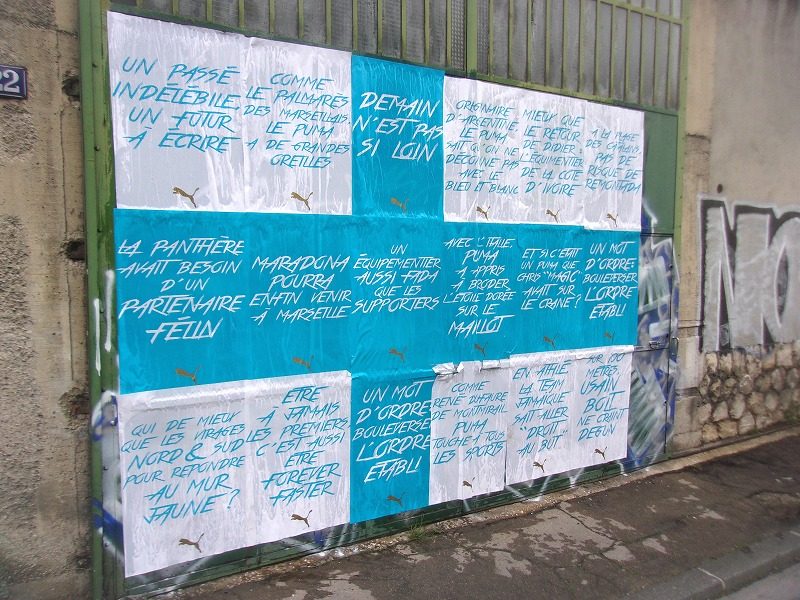 22
UN PASSÉ
INDÉLÉBILE,
UN FUTUR
À ÉCRIRE
COMME
LE PALMARÈS
DES MARSEILLAIS,
LE PUMA
A DE GRANDES
OREILLES
DEMAIN
N'EST PAS
SI LOIN
ORIGINAIRE
D'ARGENTINE,
LE PUMA
SAIT QU'ON NE
DÉCONNE PAS
AVEC LE
BLEU ET BLANC
MIEUX QUE
LE RETOUR
DE DIDIER,
L'ÉQUIPEMENTIER
DE LA COTE
D'IVOIRE
A LA PLAGE
DES CATALANS,
PAS DE
RISQUE DE
REMONTADA
LA PANTHÈRE
AVAIT BESOIN
D'UN
PARTENAIRE
FÉLIN
MARADONA
POURRA
ENFIN VENIR
A MARSEILLE
UN
ÉQUIPEMENTIER
AUSSI FADA
QUE LES
SUPPORTERS
AVEC L'ITALIE,
PUMA
A APPRIS
A BRODER
L'ÉTOILE DORÉE
SUR LE
MAILLOT
ET SI C'ÉTAIT
UN PUMA QUE
CHRIS "MAGIC"
AVAIT SUR
LE CRANE ?
UN MOT
D'ORDRE :
BOULEVERSER
L'ORDRE
ÉTABLI
QUI DE MIEUX
QUE LES VIRAGES
NORD & SUD
POUR RÉPONDRE
AU MUR
JAUNE ?
ETRE
À JAMAIS
LES PREMIERS,
C'EST AUSSI
ETRE
FOREVER
FASTER
UN MOT
D'ORDRE :
BOULEVERSER
L'ORDRE
ÉTABLI
COMME
RENÉ DUFAURE
DE MONTMIRAIL,
PUMA
TOUCHE À TOUS
LES SPORTS
EN ATHLÉ,
LA TEAM
JAMAÏQUE
SAIT ALLER
"DROIT
AU BUT"
SUR 100
MÈTRES,
USAIN
BOLT
NE CRAINT
DEGUN
NO